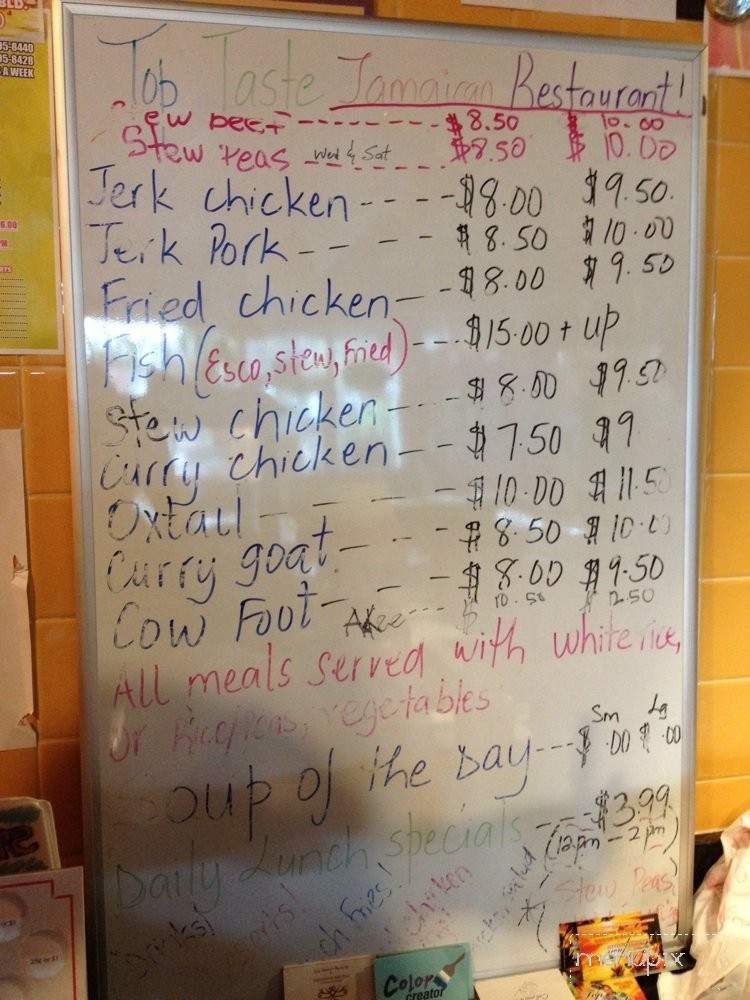 Top Taste Jamaican Restaurant!
ew beef ------- $8.50 $10.00
Stew Peas Wed & Sat ------ $8.50 $10.00
Jerk chicken ---- $8.00 $9.50
Jerk Pork -- -- - - $8.50 $10.00
Fried chicken -- - $8.00 $9.50
Fish (Esco, stew, Fried) --- $15.00 + up
Stew chicken -- - $8.00 $9.50
Curry chicken - - $7.50 $9
Oxtail - - - - $10.00 $11.50
Curry goat - - $8.50 $10.00
Cow Foot - - - $8.00 $9.50
Akee --- $10.50 $12.50
All meals served with white rice,
or Rice/Peas, vegetables
Sm Lg
Soup of the Day --- $ .00 $ .00
Daily Lunch specials --- $3.99
(12pm - 2pm)
Drinks!
Fries!
Chicken
Stew Peas,
95-8440
95-8428
A WEEK
Color
creator
menupix